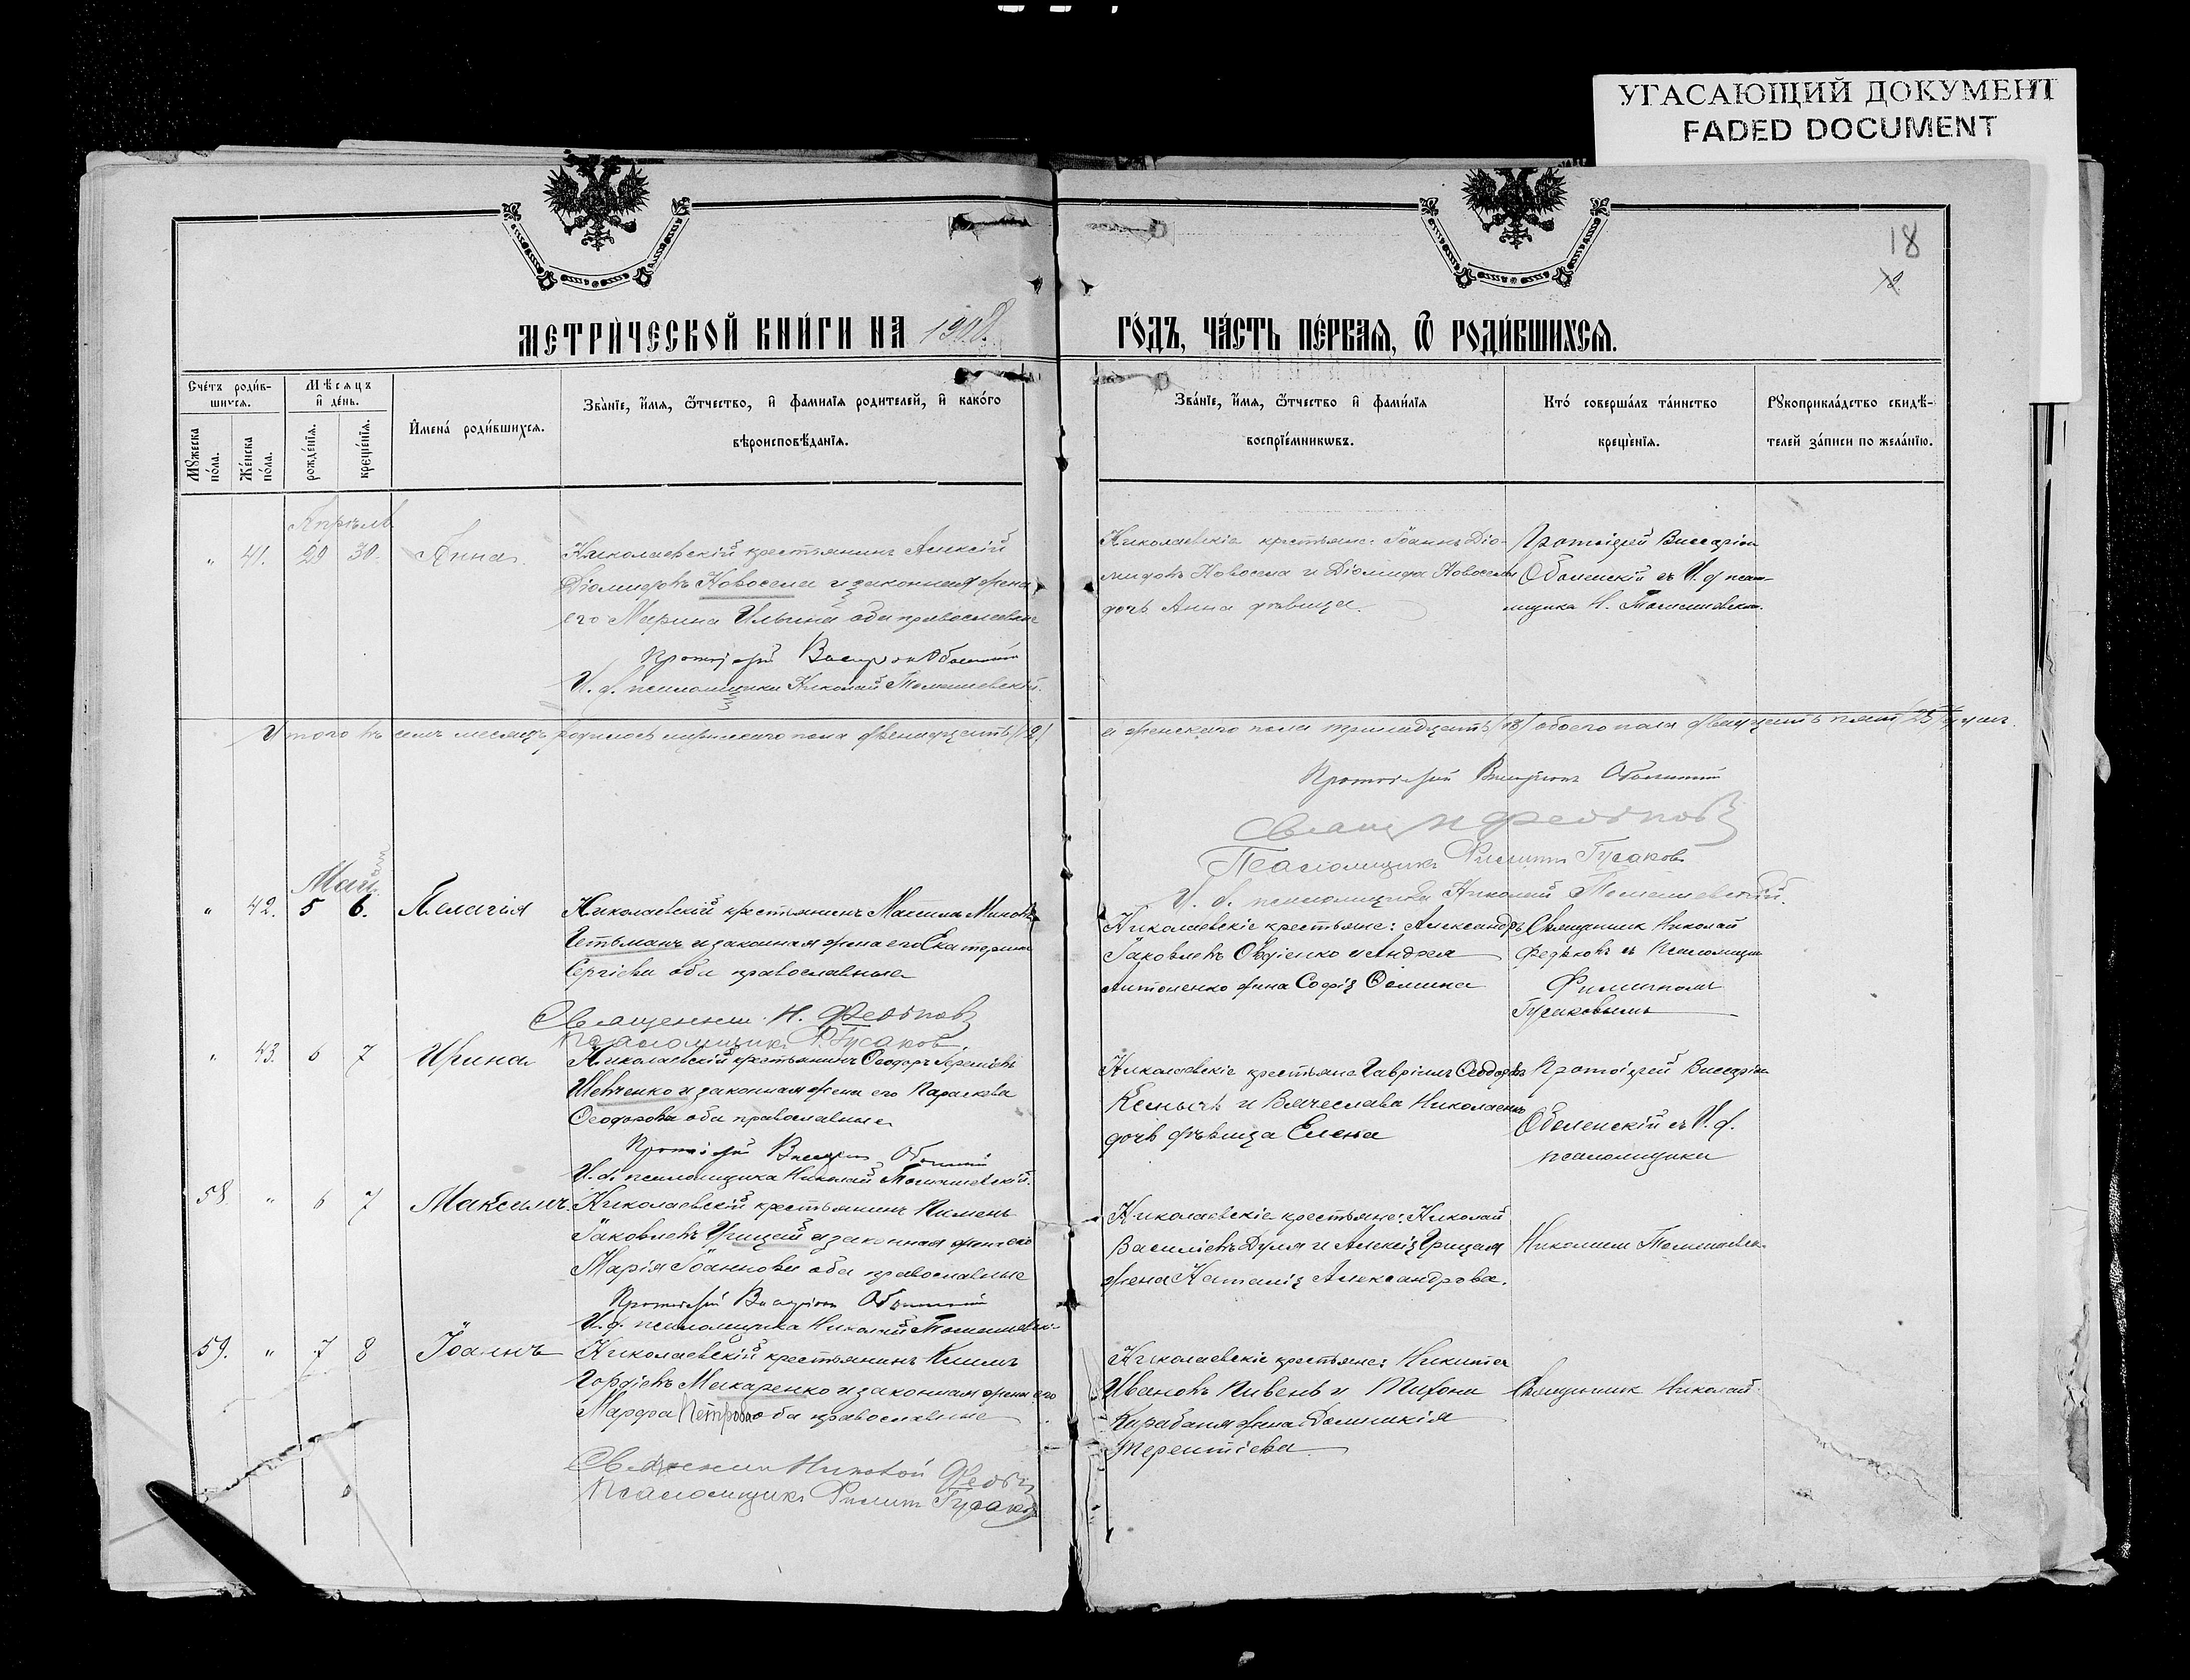 УГАСАЮЩИЙ ДОКУМЕНТ
FADED DOCUMENT
18
МЕТРИ́ЧЕСКОЙ КНИ́ГИ НА 1908
ГО́ДЪ, ЧА́СТЬ ПЕ́РВАѦ, Ѿ РОДИ́ВШИХСѦ.
Сче́тъ роди́в-
шихсѧ.
Мѣсѧцъ
и҆ де́нь.
Мꙋ́жеска
по́ла.
Же́нска
по́ла.
рожде́нїѧ.
креще́нїѧ.
И҆мена́ роди́вшихсѧ.
Зва́нїе, и҆́мѧ, ѻ҆́тчество, и҆ фами́лїѧ роди́телей, и҆ како́гѡ
вѣроисповѣ́данїѧ.
Зва́нїе, и҆́мѧ, ѻ҆́тчество и҆ фами́лїѧ
воспрїе́мникѡвъ.
Кто́ соверша́лъ та́инство
креще́нїѧ.
Рꙋкоприкла́дство свидѣ́-
телей за́писи по жела́нїю.
Апрѣль
" 41. 20 30. Анна.
Николаевскій крестьянинъ Алексій
Діомидовъ Новосела и законная жена
его Марина Ильина оба православные
Протоіерей Виссаріонъ Оболенскій
И. д. псаломщика Николай Томашевскій.
Николаевскіе крестьяне: Іоаннъ Діо-
мидовъ Новосела и Діомида Новоселы
дочь Анна дѣвица.
Протоіерей Виссаріонъ
Оболенскій съ И. д. псало-
мщика Н. Томашевским.
Итого въ семъ месяцѣ родилось мужескаго пола двенадцать (12)
а женскаго пола тринадцать (13) обоего пола двадцать пять (25) душъ.
Протоіерей Виссаріонъ Оболенскій
Священ Н Федьковъ
Псаломщикъ Филиппъ Гусаковъ
И. д. псаломщика Николай Томашевскій.
Май
" 42. 5 6. Пелагія
Николаевскій крестьянинъ Максимъ Миновъ
Гетьманъ и законная жена его Екатерина
Сергіева оба православные
Священник Н. Федьковъ
Псаломщикъ Ф. Гусаковъ.
Николаевскіе крестьяне: Александръ
Іаковлевъ Овдіенко и Андрея
Антоненко жена Софія Ѳомина
Священник Николай
Федьковъ съ Псаломщи
Филиппомъ
Гусаковымъ
" 43. 6 7 Ирина
Николаевскій крестьянинъ Ѳеодоръ
Шевченко и законная жена его Параскева
Ѳеодорова оба православные
Протоіерей Виссаріон Оболенскій
И. д. псаломщика Николай Томашевскій.
Николаевскіе крестьяне Гавріилъ Ѳеодоровъ
и Вячеслава Николаенко
дочь дѣвица Елена
Протоіерей Виссаріон
Оболенскій съ И. д.
псаломщика
58 " 6 7 Максимъ.
Николаевскій крестьянинъ Пименъ
Іаковлевъ Грицай и законная жена его
Марія Іоаннова оба православные
Протоіерей Виссаріон Оболенскій
И. д. псаломщика Николай Томашевскі
Николаевскіе крестьяне: Николай
Василіевъ Дуля и Алексія Грицая
жена Наталія Александрова.
Николаем Томашевск
59. " 7 8 Іоаннъ
Николаевскій крестьянинъ Климъ
Гордіевъ Макаренко и законная жена его
Марфа Петрова оба православные
Священник Николай Федьк
Псаломщикъ Филипп Гусаков
Николаевскіе крестьяне: Никита
Ивановъ Пивень и Тихона
Карабаня жена Домникія
Терентіева
Священник Николай